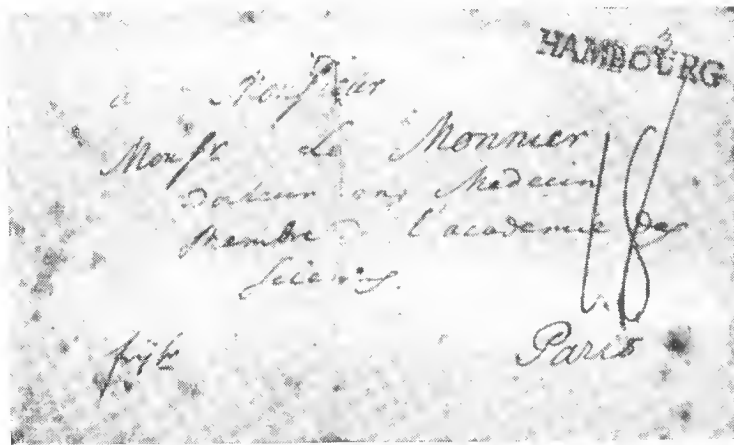 HAMBOURG
à Monsieur
Monsr. Le Monnier
Docteur en Medecin
Membre de l'academie des
Sciences.
18
Paris